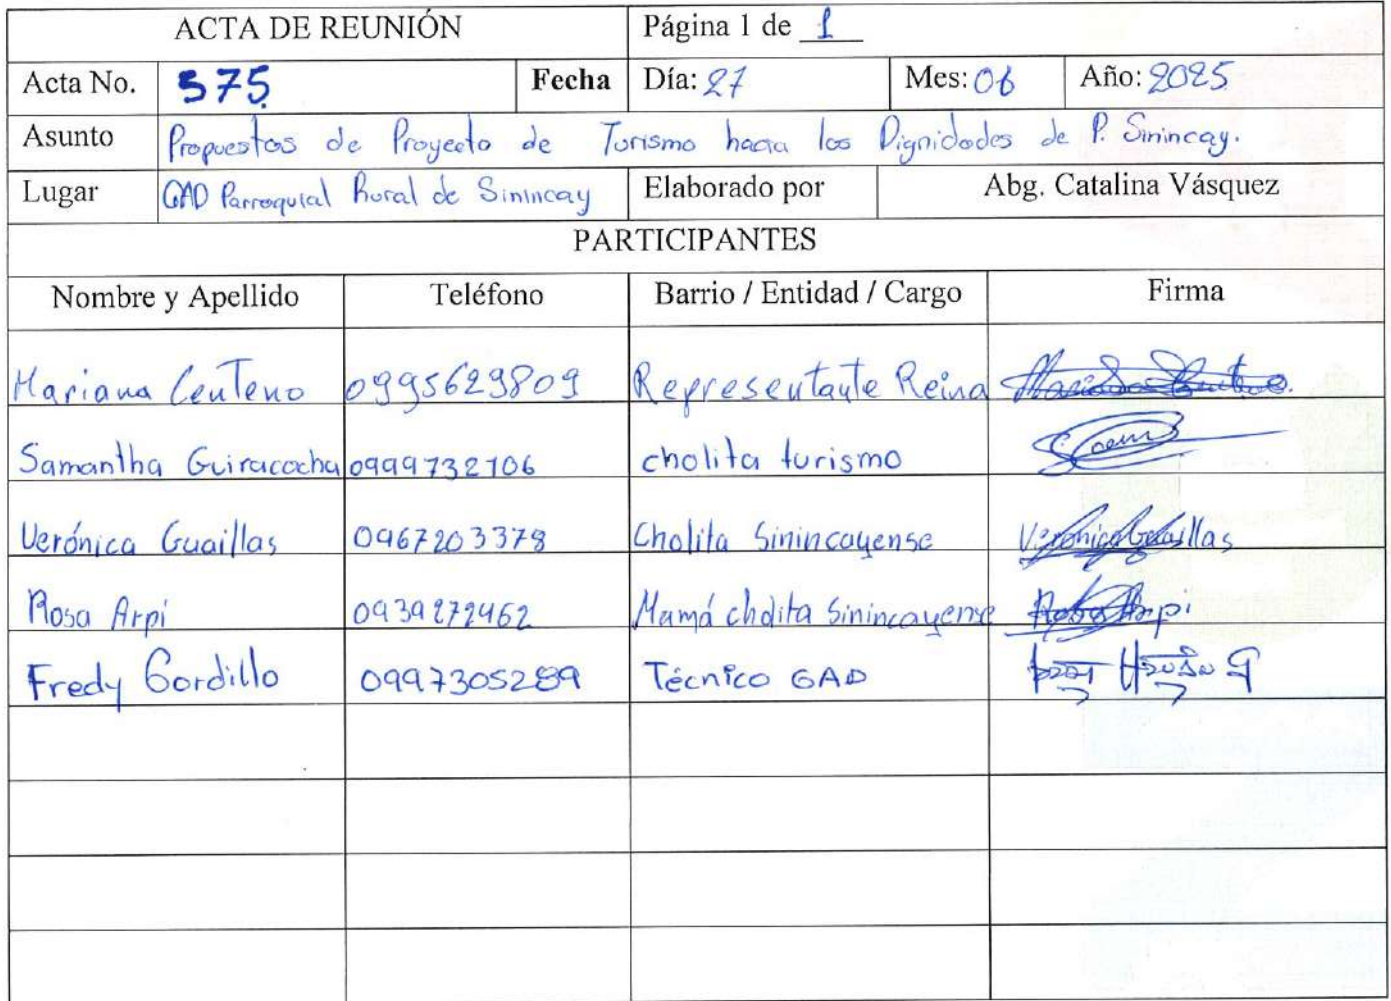 ACTA DE REUNIÓN Página 1 de 1
Acta No. 575 Fecha Día: 27 Mes: 06 Año: 2025
Asunto Propuestas de Proyecto de Turismo hacia las Dignidades de P. Sinincay.
Lugar GAD Parroquial Rural de Sinincay Elaborado por Abg. Catalina Vásquez
PARTICIPANTES
Nombre y Apellido Teléfono Barrio / Entidad / Cargo Firma
Mariana Centeno 0995629809 Representante Reina
Samantha Guiracocha 0999732106 cholita turismo
Verónica Guaillas 0967203378 Cholita Sinincayense Verónica Guaillas
Rosa Arpi 0939272962 Mamá cholita Sinincayense Rosa Arpi
Fredy Gordillo 0997305289 Técnico GAD